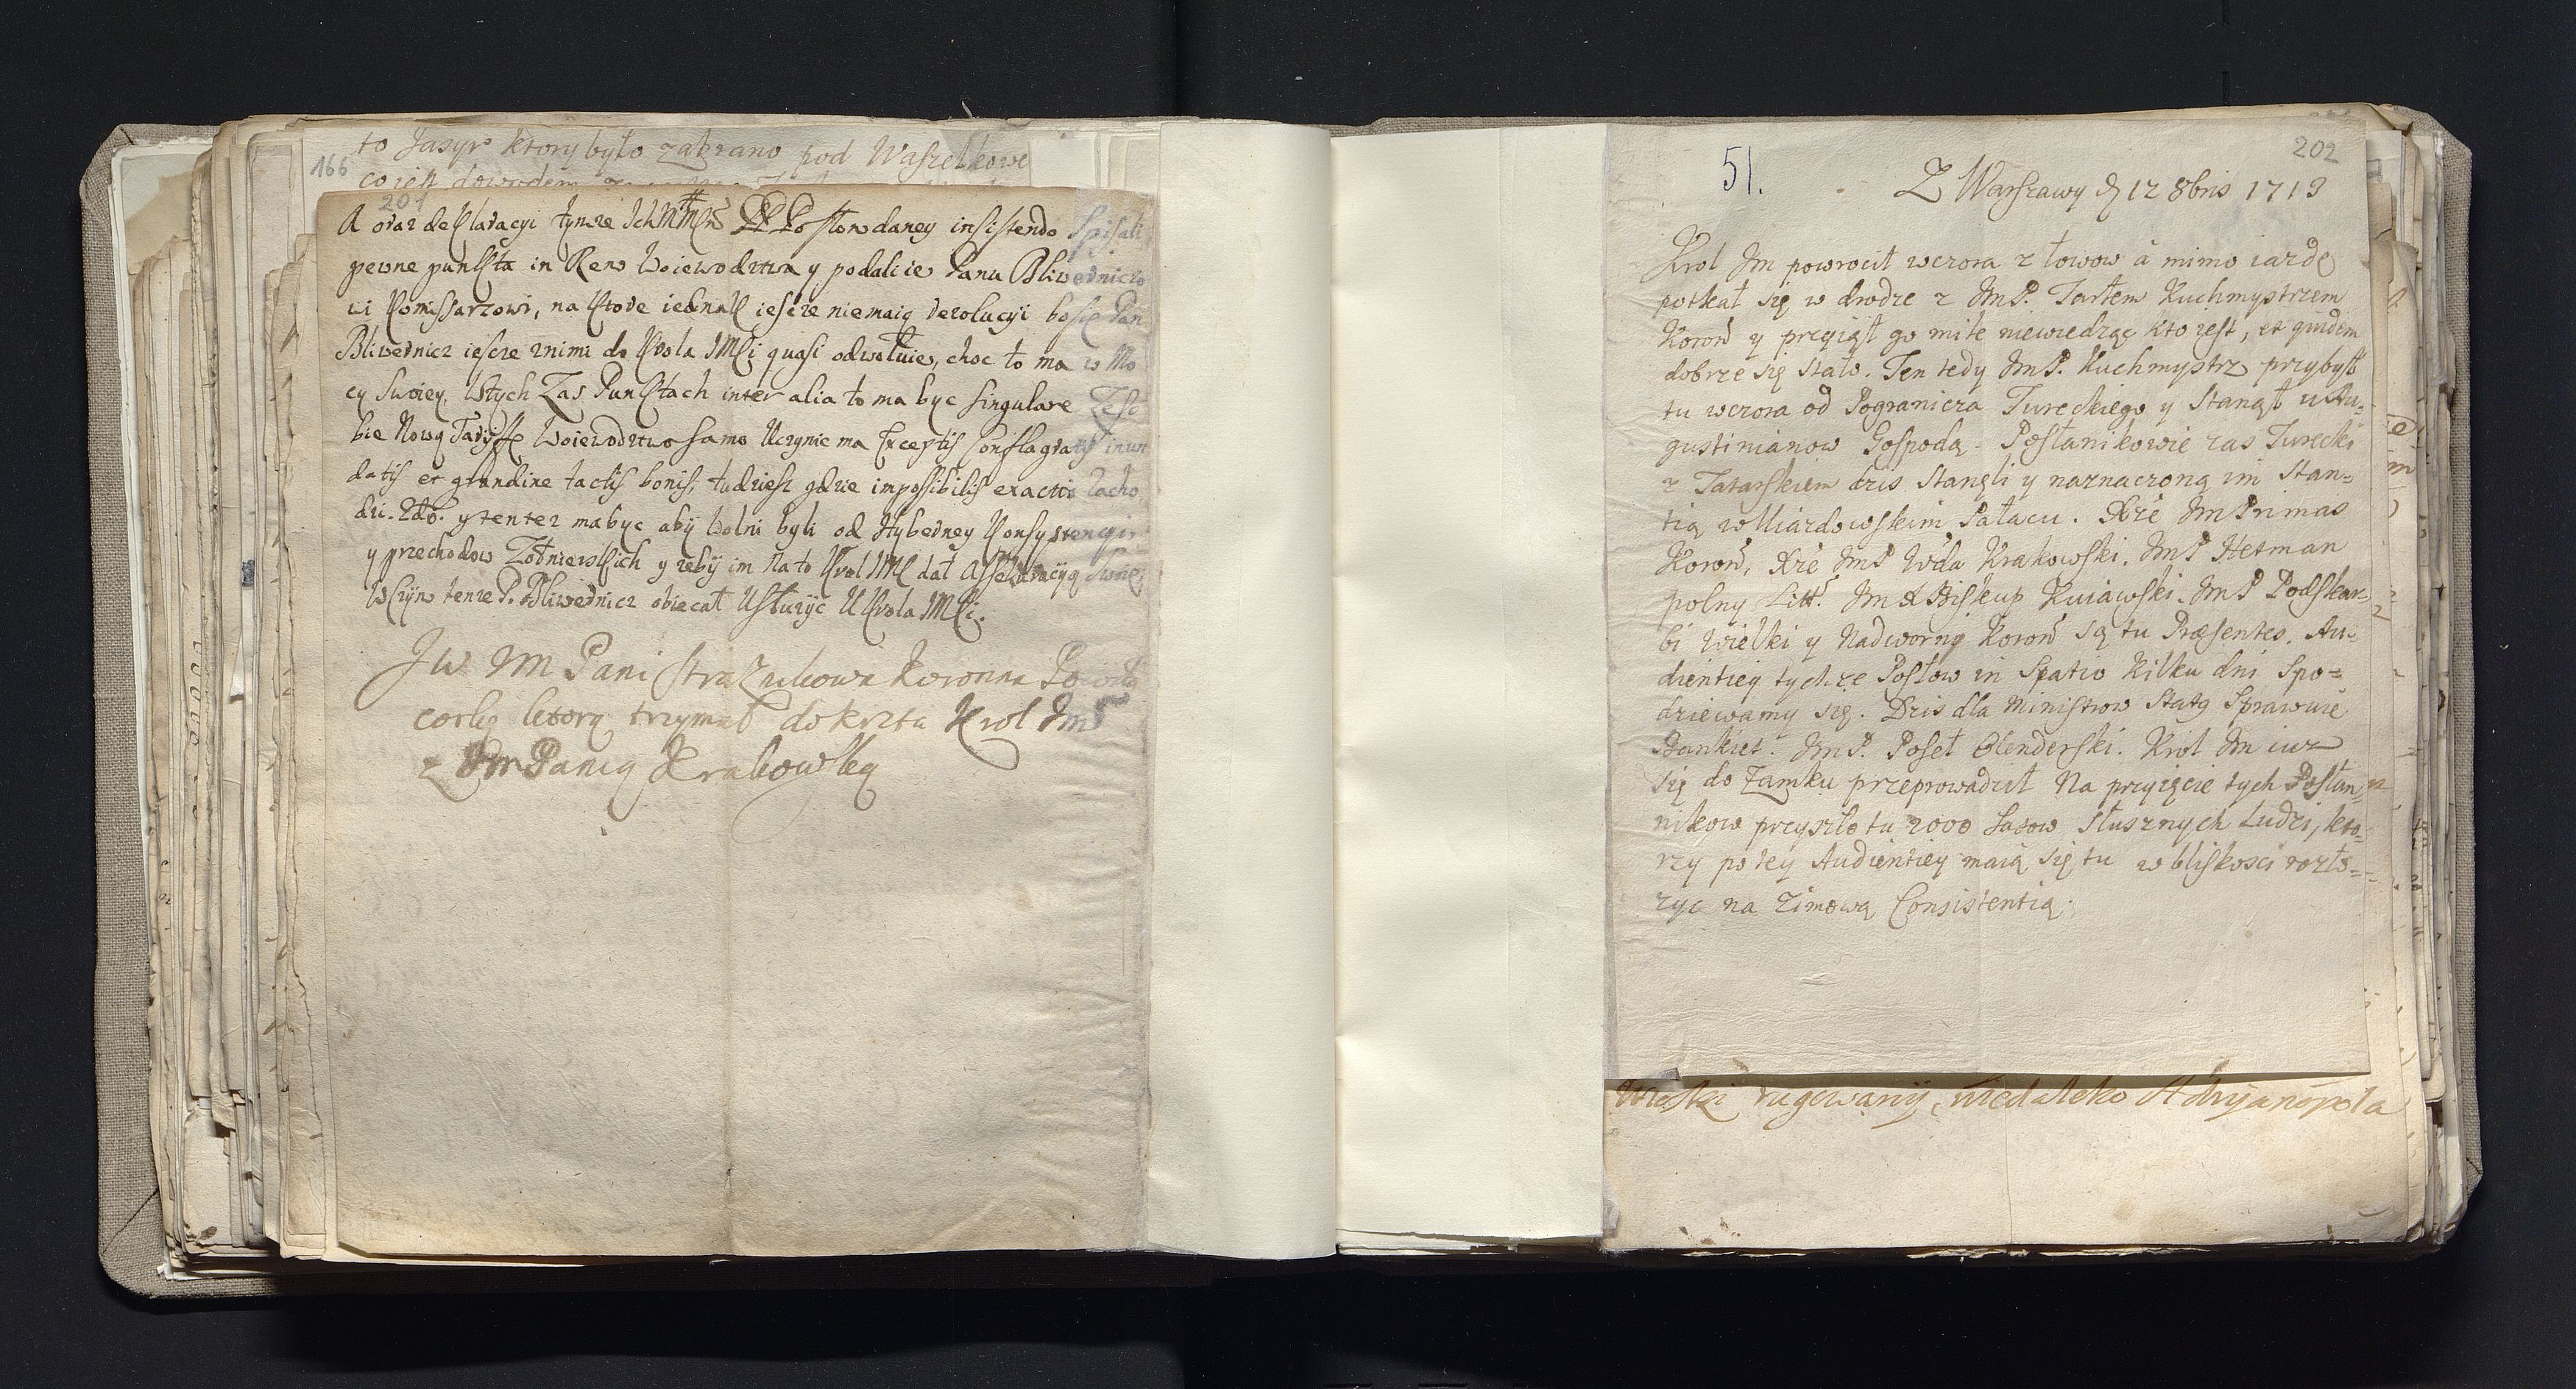 166
to Jasyr ktory było zabrano pod Waszelkowe
201
A oraz deklaracyi tymze Ichmciow PP Posłow daney insistendo Spisali
pewne punkta in Rem Woiewodztwa y podali ie Panu Bliwernicz
wi Komissarzowi, na ktore iednak iescze niemaią rezolucyi bo się Pan
Bliwernicz iescze znimi do Krola JMCi quasi odwołuie, choc to ma w Mo
cy Swoiey, Wtych Zas Punktach inter alia to ma byc singulare Ze so
bie Nową Taryffę Woiewodztwo samo Uczynic ma Exceptis Conflagratis inun
datis et grandine tactis bonis, tudziesz gdzie impossibilis exactio zacho
dzi. 2do. y ten tez ma byc aby Wolni byli od Hyberney Konsystencyi,
y przechodow Zołnierskich y zeby im Na to Krol JMC dał Assekuracyą Swoię,
W czym tenze P. Bliwernicz obiecał Usłuzyc U Krola JMCi.
JW JM Pani Straznikowa Koronna Powiła
corkę ktorą trzymał do krztu Krol Jmć
z Jm Panią Krakowską
51.
202
Z Warszawy D 12 8bris 1713
Krol Jm powrocił wczora z łowow á mimo iazdę
potkał się w drodze z JmP. Tarłem Kuchmystrzem
Koron y przyiął go mile niewiedząc kto iest, et quidem
dobrze się stało. Ten tedy JmP. Kuchmystrz przybył
tu wczora od Pogranicza Tureckiego y Stanął u Au=
gustinianow Gospodą. Posłanikowie zas Turecki
z Tatarskiem dzis Stanęli y naznaczoną im Stan=
tią w Uiazdowskim Pałacu. Xże Jm Primas
Koron, Xże JmP Wda Krakowski. JmP Hetman
polny Litt. Jm X Biskup Kuiawski. JmP Podskar=
bi Wielki y Nadworny Koron są tu Præsentes. Au=
dientiey tychze Posłow in Spatio kilku dni Spo=
dziewamy się. Dzis dla Ministrow Statą Sprawuie
Bankiet. JmP. Poseł Olenderski. Krol Jm iuz
się do Zamku przeprowadził Na przyięcie tych Posłan=
nikow przyszło tu 2000 Sasow słusznych Ludzi, kto=
rzy po tey Audientiey maią się tu w bliskosci rozło=
zyc na Zimową Consistentią.
rugowany, niedaleko Adryanopola